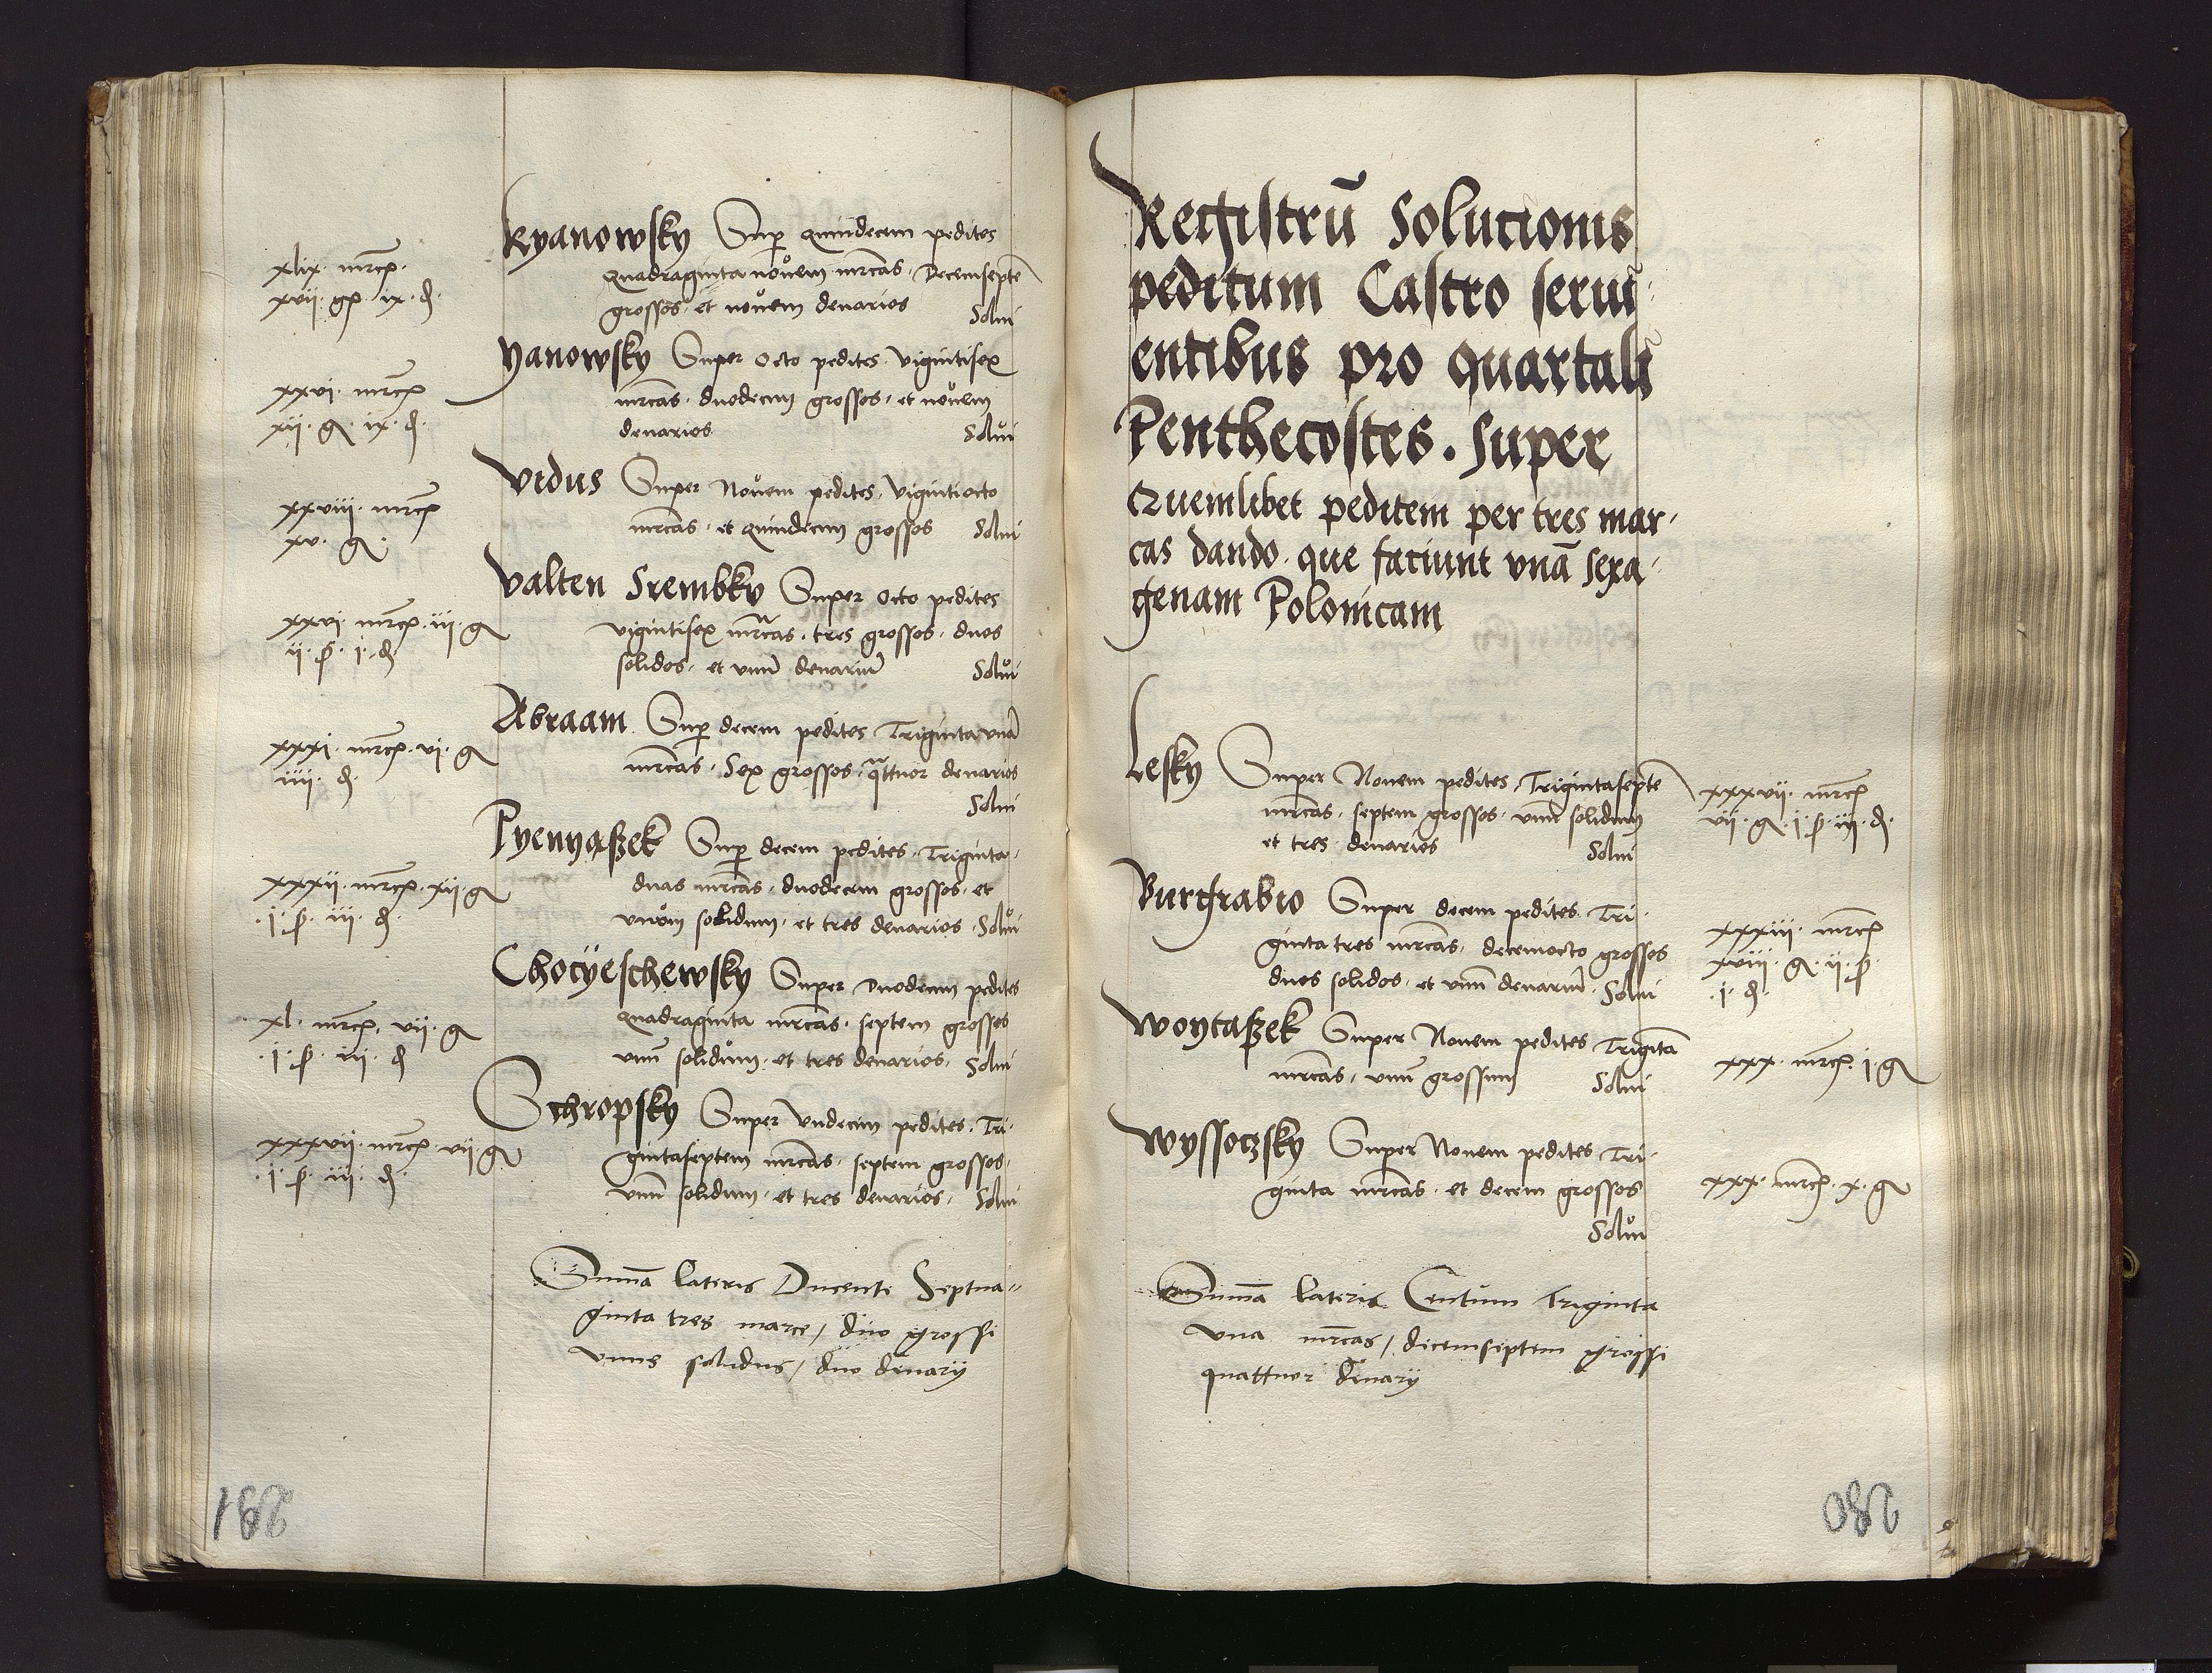 xlix · mrcę ·
xvii · gę · ix · đ ·
kyanowsky Sup quindecem pedites
quadraginta novem mrcas · decemseptē
grossos · et novem denarios Solui
xxvi · mrcę
xii · g · ix · đ ·
yanowsky Super octo pedites · vigintisex
mrcas · duodecim grossos · et novem
denarios Solui
xxviii · mrcę
xv · g ·
vidus Super Novem pedites · vigintiocto
mrcas · et quindecim grossos Solui
xxvi · mrcę · iii · g
ii · ꝑ · i · đ
valten Srembky Super octo pedites
vigintisex mrcas · tres grossos · duos
solidos · et vnū denariū Solui
xxxi · mrcę · vi · g
iiii · đ ·
Abraam Sup decem pedites Triginta vnā
mrcas · Sex grossos · qttuor denarios
Solui
xxxii · mrcę · xii · g
· i · ꝑ · iii · đ ·
Pyenyąszek Sup decem pedites · Triginta ·
duas mrcas · duodecem grossos · et
vnum solidum · et tres denarios · Solui
xl · mrcę · vii · g
· i · ꝑ · iii · đ
Chocyeschewsky Super Duodecim pedites
quadraginta mrcas · septem grossos
vnū solidum · et tres denarios · Solui
xxxvii · mrcę · vii · g
· i · ꝑ · iii · đ ·
Schropsky Super vndecim pedites · Tri ·
gintaseptem mrcas · septem grossos ·
vnū solidum · et tres denarios · Solui
Suma Lateris Ducente Septua=
ginta tres marce / duo grossi
vnus solidus / duo denarij
281
Registrū Solucionis
peditum Castro serui ·
entibus pro quartali
Penthecostes . Super
Quemlibet peditem per tres mar ·
cas dando · que faciunt vnā sexa ·
genam Polonicam
Lesky Super Nouem pedites · Trigintaseptē
mrcas · septem grossos · vnū solidum
et tres denarios Solui
xxxvii · mrcę
vii · g · i · ꝑ · iii · đ ·
Burgrabio Super decem pedites · Tri ·
ginta tres mrcas · decemocto grossos
duos solidos · et vnū denariū · Solui
xxxiii · mrcę
xviii · g · ii · ꝑ ·
· i · đ ·
woytaszek Super Nouem pedites Trigītā
mrcas · vnū grossum Solui
xxx · mrcę · i g
wyssoczsky Super Nouem pedites Tri ·
ginta mrcas · et decem grossos
Solui
xxx · mrcę · x · g
Suma Lateris Centum Triginta
vna mrcas / decemseptem grossi
quattuor denarij
280